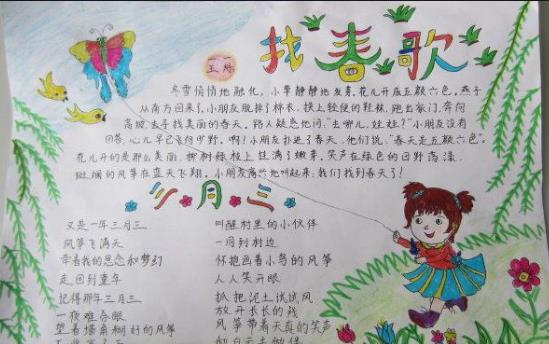 找春歌
冬雪悄悄地融化,小草静静地发青,花儿开成五颜六色。燕子
从南方回来了,小朋友脱掉了棉衣,换上轻便的鞋袜,跑出家门,奔向
高坡,去寻找美丽的春天。路人疑惑地问:"去哪儿,娃娃?"小朋友没有
回答,心儿早已飞向旷野。啊!小朋友扑进了春天,他们说:"春天是五颜六色"。
花儿开的是那么美丽,柳树绿枝上挂满了嫩芽,笑声在绿色的田野荡漾,
斑斓的风筝在蓝天下翔。小朋友高兴地叫起来:我们找到春天了!
三月三
又是一年三月三
风筝飞满天
牵着我的思念和梦幻
走回到童年
记得那年三月三
一夜难合眼
望着墙角糊好的风筝
叫醒村里的小伙伴
一同到村边
怀抱画着小鸟的风筝
人人笑开眼
扒把泥土试试风
放开长长的线
风筝带着天真的笑声
和白云去做伴